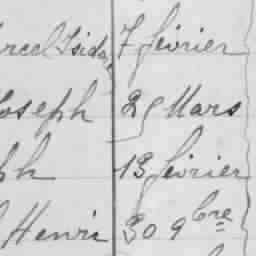 rcel Isidor 7 février
Joseph 25 Mars
ph 13 février
Henri 30 9bre